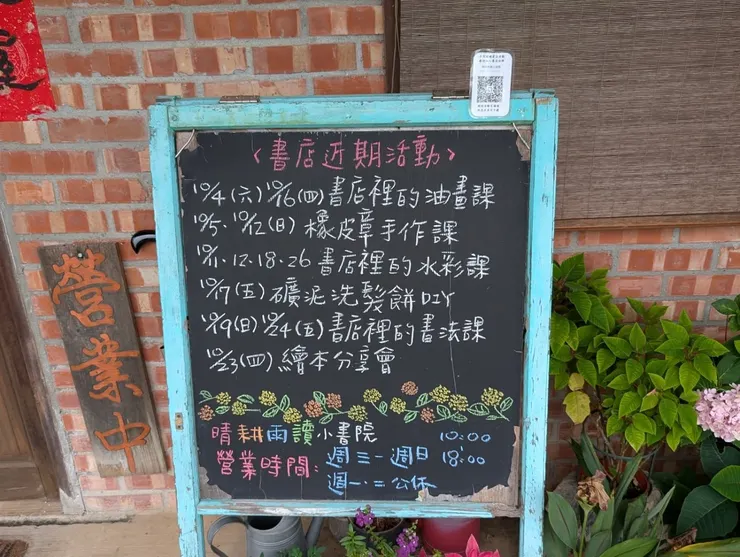 〈書店近期活動〉
10/4(六) 10/16(四)書店裡的油畫課
10/5、10/12(日)橡皮章手作課
10/11.12.18.26 書店裡的水彩課
10/17(五)礦泥洗髮餅DIY
10/19(日) 10/24(五)書店裡的書法課
10/23(四)繪本分享會
晴耕雨讀小書院
營業時間: 週三-週日 10:00
18:00
週一.二公休
營業中